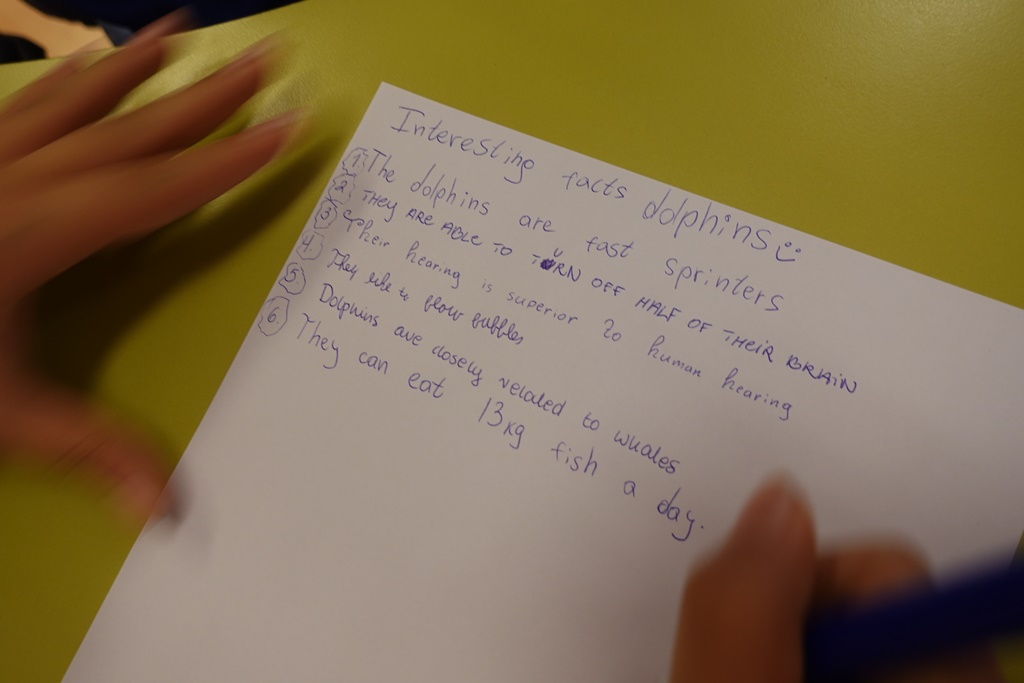 Interesting facts dolphins
1. The dolphins are fast sprinters
2. THEY ARE ABLE TO TURN OFF HALF OF THEIR BRAIN
3 Their hearing is superior to human hearing
4. They like to blow bubbles
5. Dolphins are closely related to whales
6. They can eat 13kg fish a day.